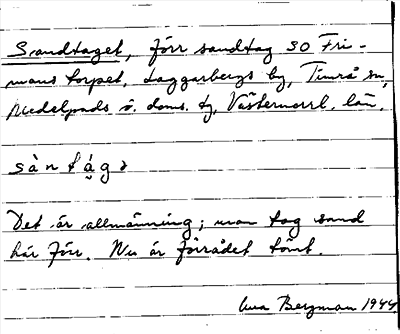 Sandtaget, förr sandtag SO Fri-
mans torpet, Laggarbergs by, Timrå sn,
Medelpads ö. doms. tg, Västernorrl. län.
sàntág
Det är allmänning; man tog sand
här förr. Nu är förrådet tömt.
Bergman 1944